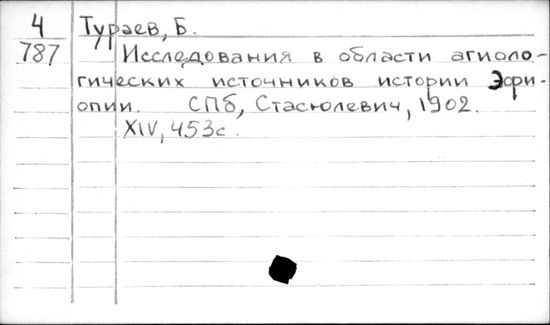 4
787
Тураев, Б.
Исследования в области агиоло-
гических источников истории Эфи-
опии. СПб, Стасюлевич, 1902.
XIV, 453с.